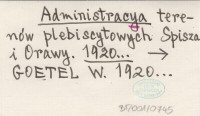 Administracya tere-
nów plebiscytowych Spisza
i Orawy. 1920... →
GOETEL W. 1920...
BJ/001/0745